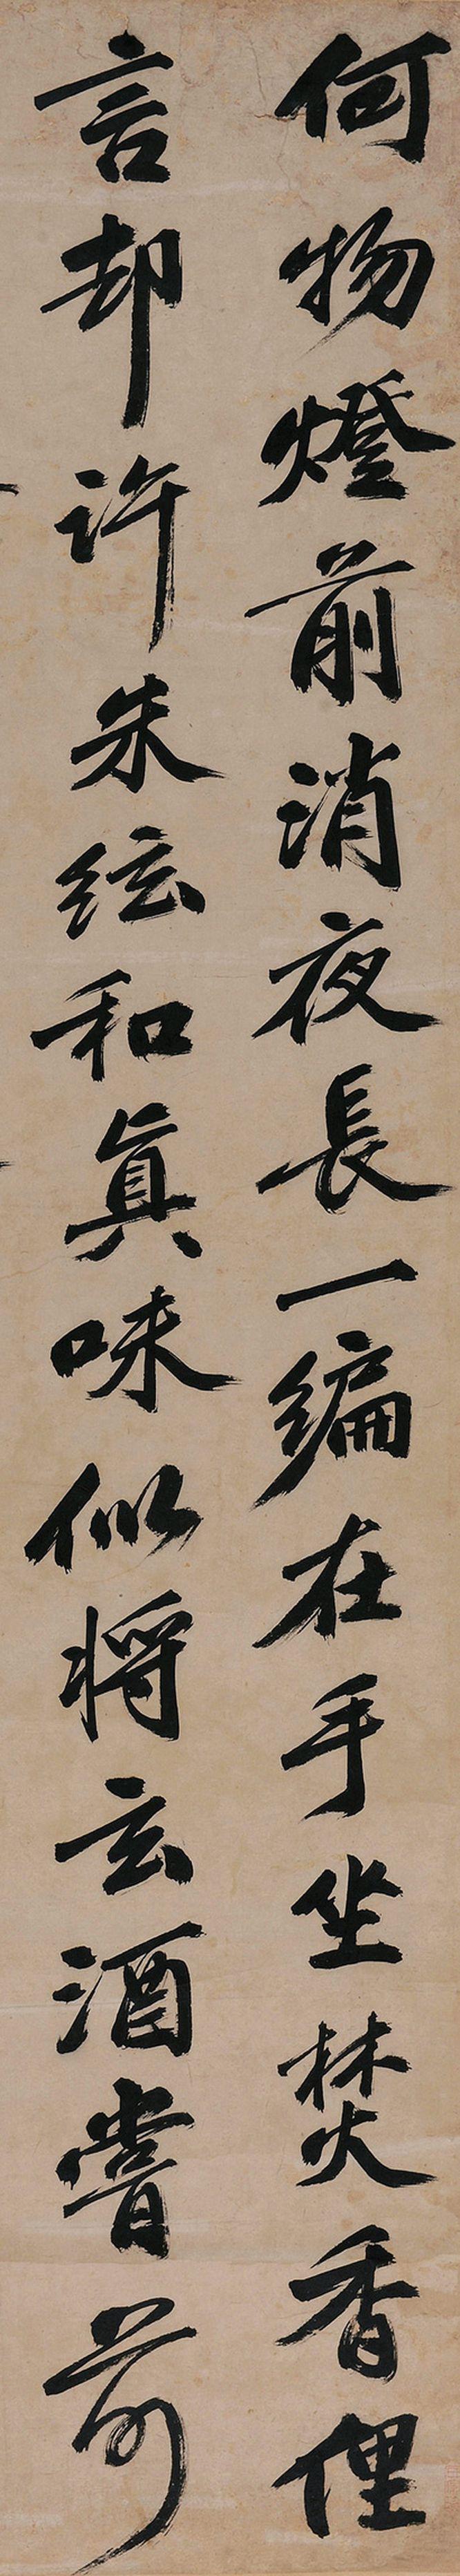 何物燈前消夜長一編在手坐焚香俚
言却許朱絃和真味似将玄酒嘗前